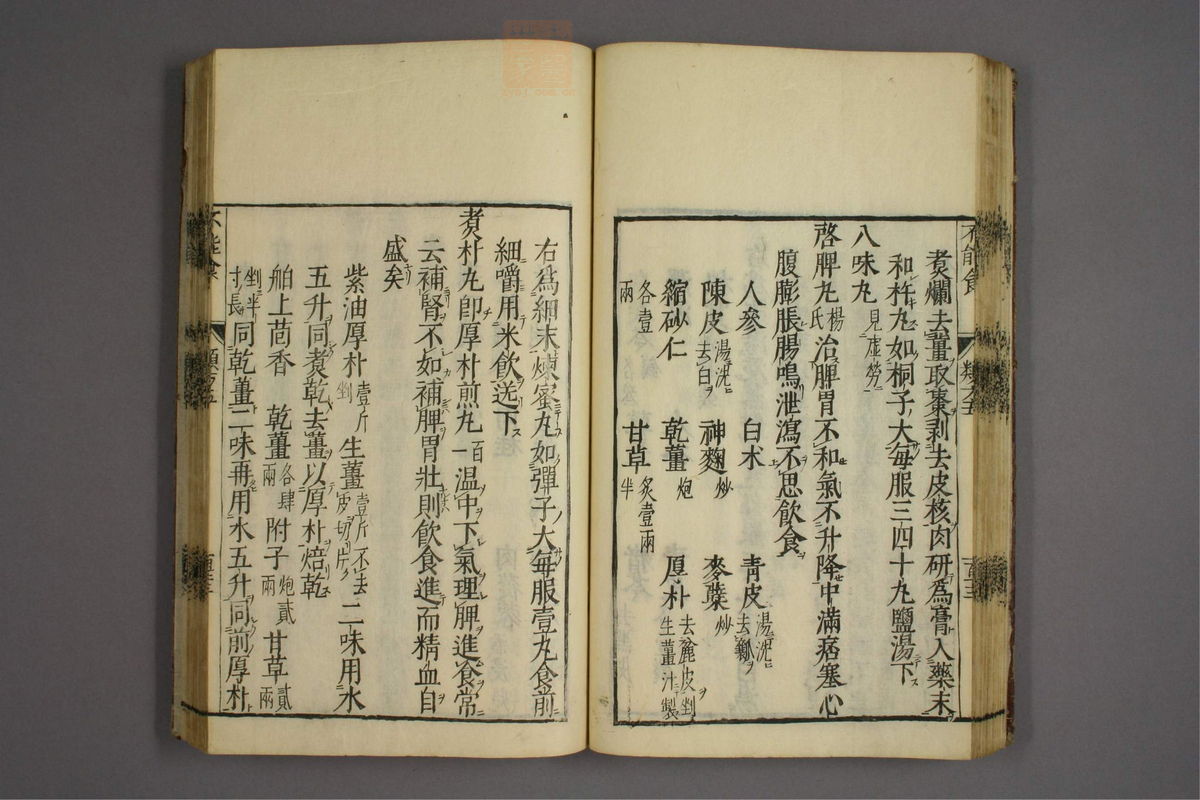 煑爛去薑取棗剥去皮核肉研爲膏入藥末
和杵丸如桐子大每服三四十丸鹽湯下
八味丸見虛勞
啓脾丸楊氏治脾胃不和氣不升降中滿痞塞心
腹膨脹腸鳴泄瀉不思飲食
人參 白朮 青皮湯洗去瓤
陳皮湯洗去白 神麴炒 麥蘖炒
縮砂仁 乾薑炮 厚朴去麁皮剉生薑汁製
各壹兩 甘草炙壹兩半
右爲細末煉蜜丸如彈子大每服壹丸食前
細嚼用米飲送下
煑朴丸卽厚朴煎丸一百温中下氣理脾進食常
云補腎不如補脾胃壯則飲食進而精血自
盛矣
紫油厚朴壹斤剉 生薑壹斤不去皮切片二味用水
五升同煑乾去薑以厚朴焙乾
舶上茴香 乾薑各肆兩 附子炮貳兩 甘草貳兩
剉半寸長同乾薑二味再用水五升同前厚朴
不能食
類方五